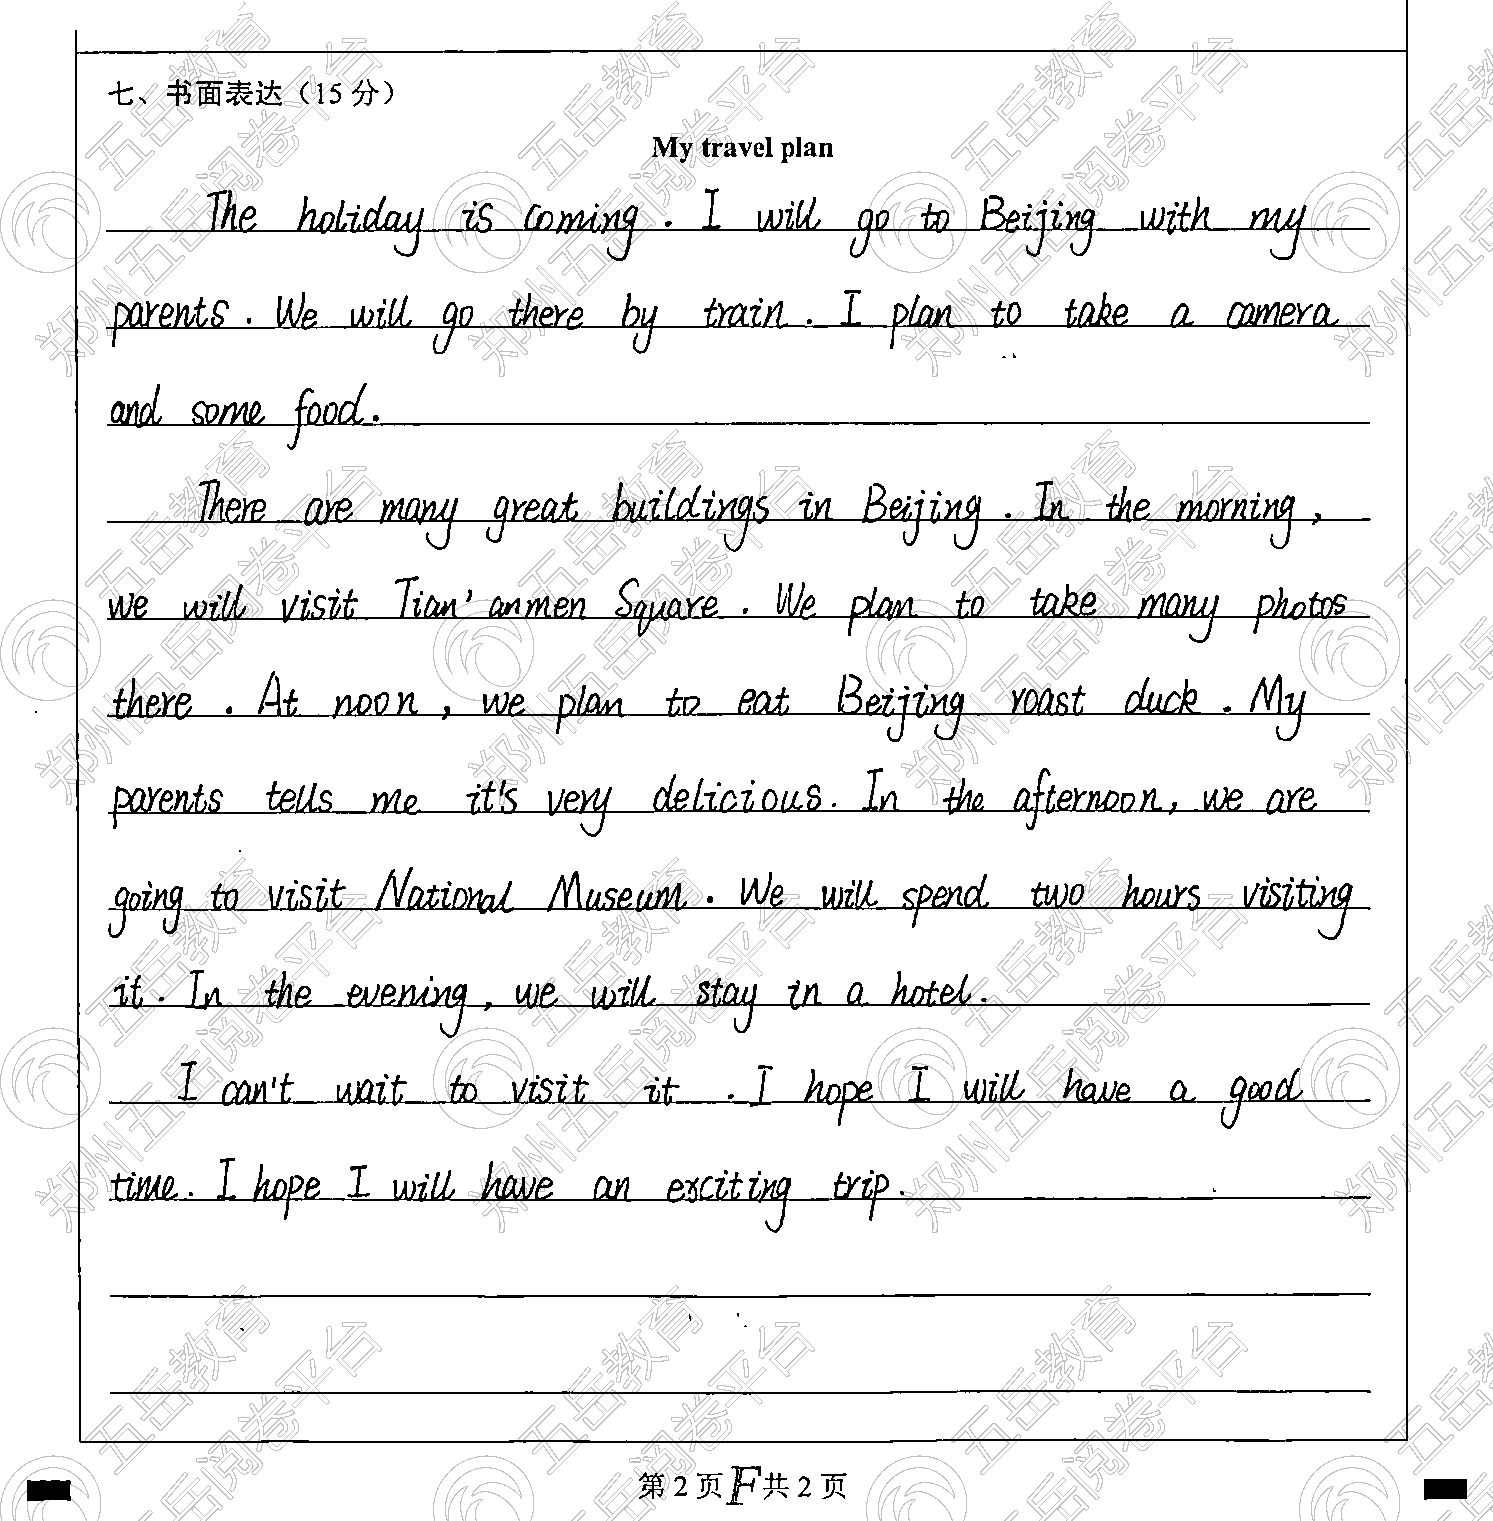 七、书面表达（15分）
My travel plan
The holiday is coming. I will go to Beijing with my
parents. We will go there by train. I plan to take a camera
and some food.
There are many great buildings in Beijing. In the morning,
we will visit Tian'anmen Square. We plan to take many photos
there. At noon, we plan to eat Beijing roast duck. My
parents tells me it's very delicious. In the afternoon, we are
going to visit National Museum. We will spend two hours visiting
it. In the evening, we will stay in a hotel.
I can't wait to visit it. I hope I will have a good
time. I hope I will have an exciting trip.
第2页 F 共2页
郑州五岳阅卷平台
五岳教育